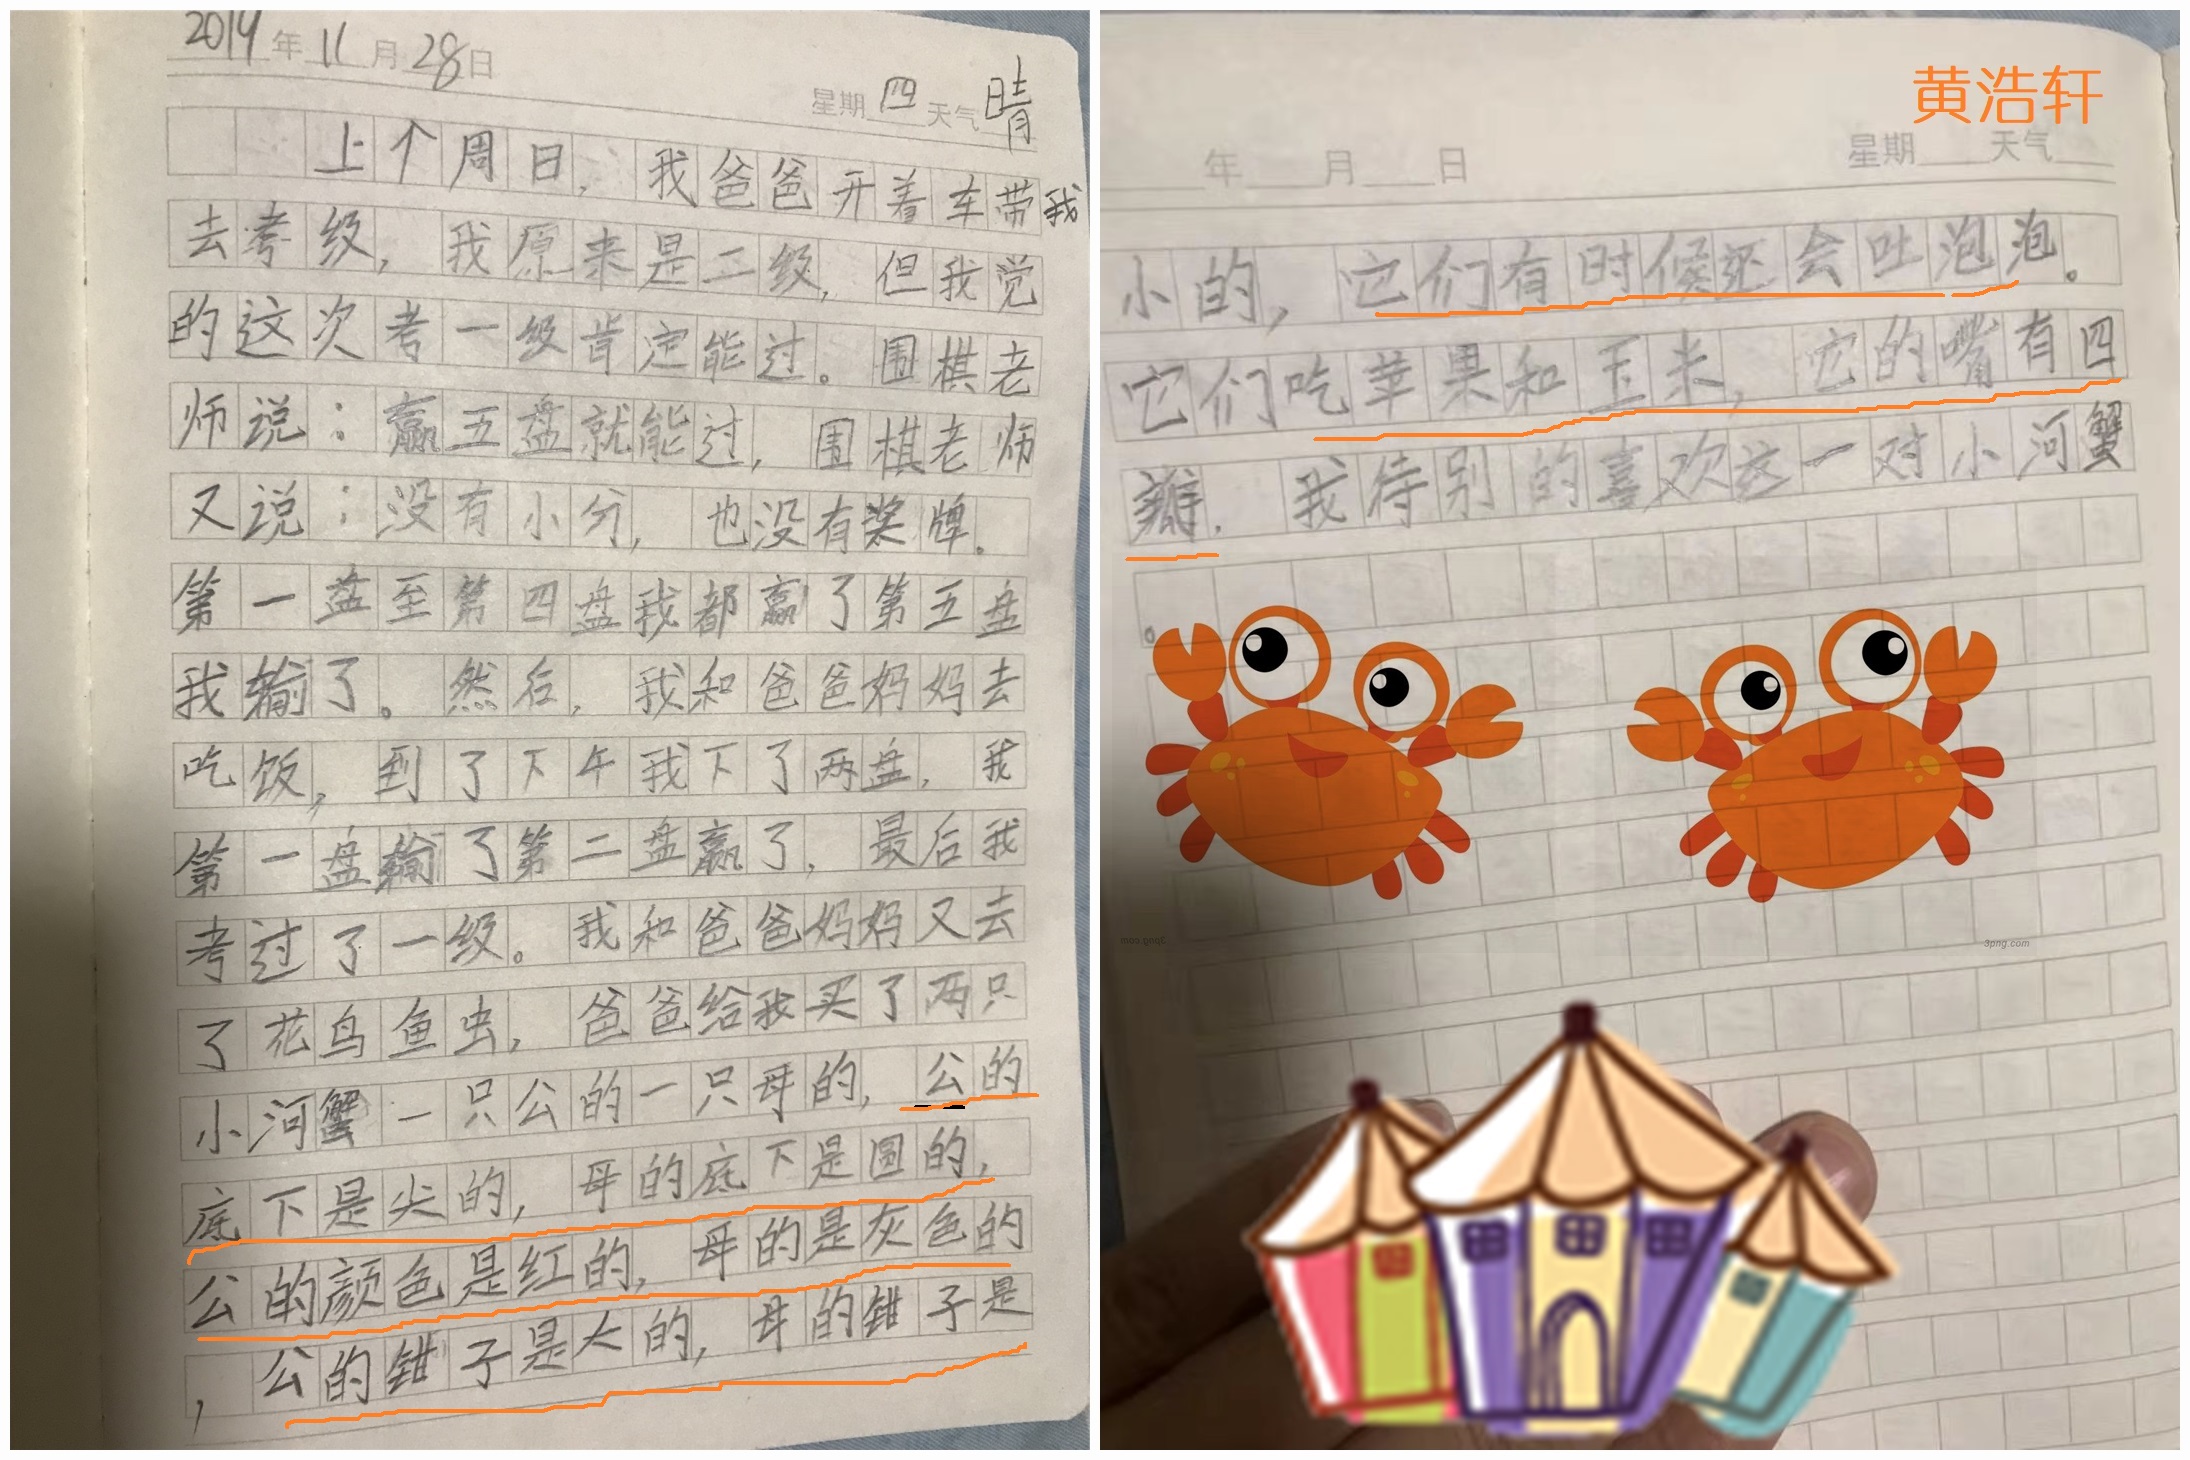 2019年11月28日
星期四天气晴
上个周日，我爸爸开着车带我
去考级，我原来是二级，但我觉
的这次考一级肯定能过。围棋老
师说：赢五盘就能过，围棋老师
又说：没有小分，也没有奖牌。
第一盘至第四盘我都赢了第五盘
我输了。然后，我和爸爸妈妈去
吃饭，到了下午我下了两盘，我
第一盘输了第二盘赢了，最后我
考过了一级。我和爸爸妈妈又去
了花鸟鱼虫，爸爸给我买了两只
小河蟹一只公的一只母的，公的
底下是尖的，母的底下是圆的，
公的颜色是红的，母的是灰色的
，公的钳子是大的，母的钳子是
黄浩轩
年月日
星期天气
小的，它们有时候还会吐泡泡。
它们吃苹果和玉米，它的嘴有四
瓣．我特别的喜欢这一对小河蟹
。
3png.com
3png.com